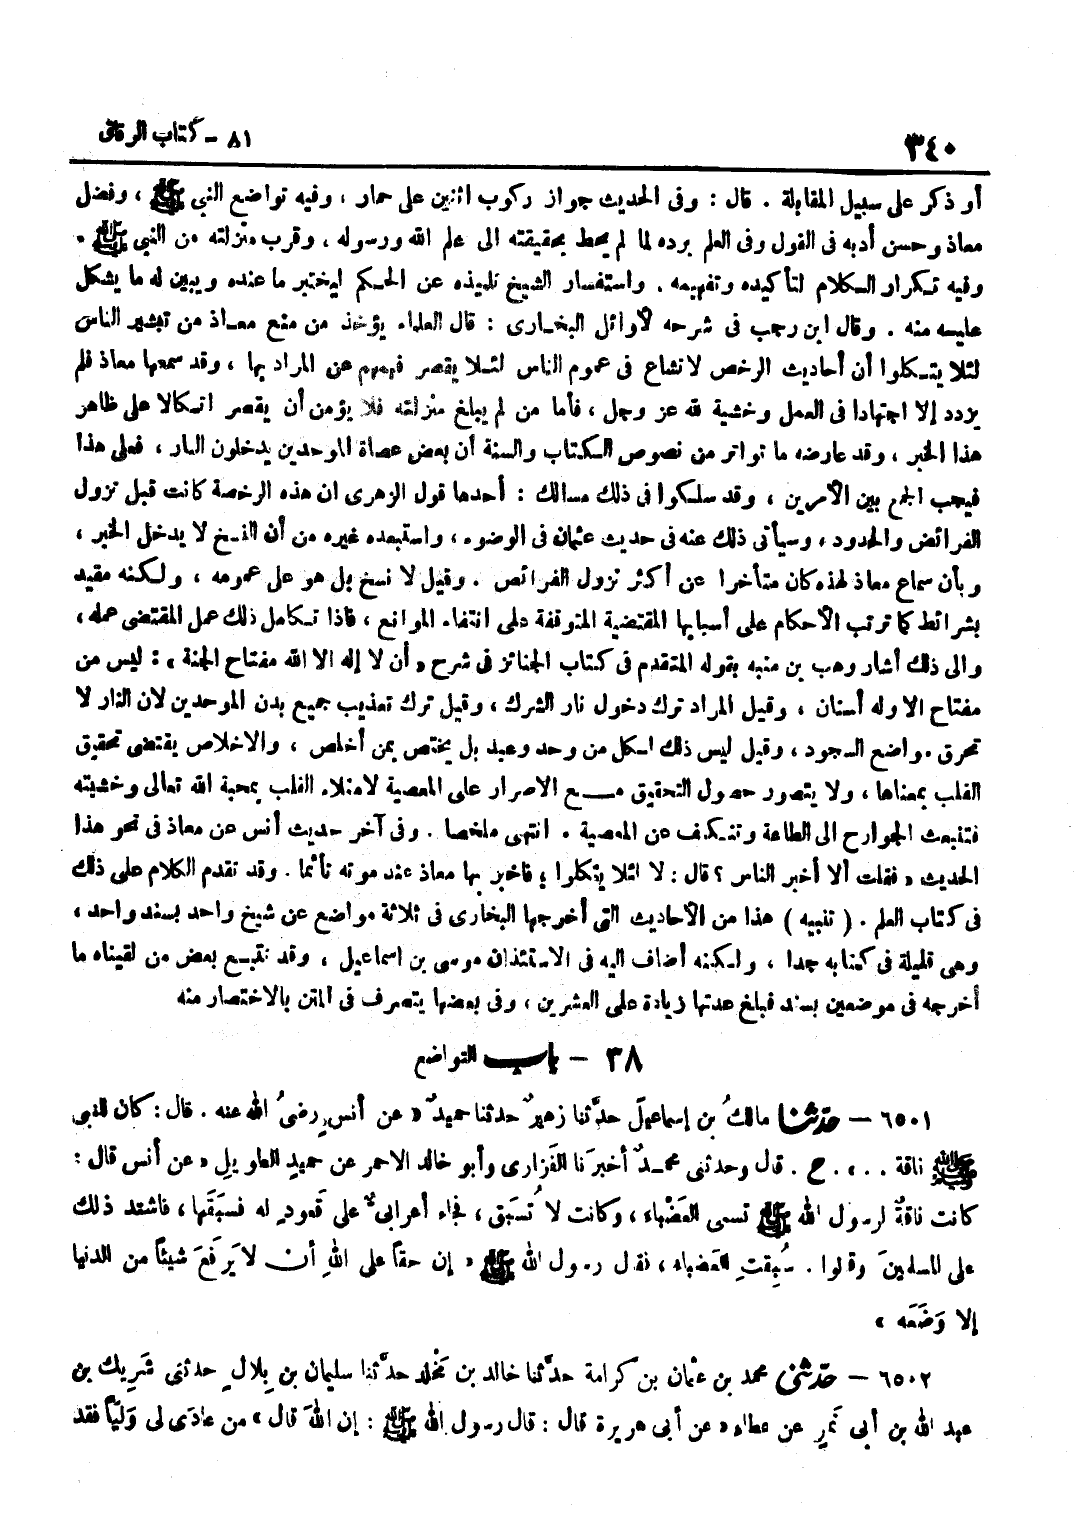 ٣٤٠ ٨١ - كتاب الرقاق
أو ذكر على سبيل المقابلة . قال : وفى الحديث جواز ركوب اثنين على حمار ، وفيه تواضع النبي ﷺ ، وفضل
معاذ وحسن أدبه فى القول وفى العلم برده لما لم يحط بحقيقته الى علم الله ورسوله ، وقرب منزلته من النبي ﷺ .
وفيه تكرار الكلام لتأكيده وتفهيمه . واستفسار الشيخ تلميذه عن الحكم ليختبر ما عنده ويبين له ما يشكل
عليه منه . وقال ابن رجب فى شرحه لأوائل البخارى : قال العلماء يؤخذ من منع معاذ من تبشير الناس
لئلا يتكلوا أن أحاديث الرخص لا تشاع فى عموم الناس لئلا يقصر فهمهم عن المراد بها ، وقد سمعها معاذ فلم
يزدد إلا اجتهادا فى العمل وخشية لله عز وجل ، فأما من لم يبلغ منزلته فلا يؤمن أن يقصر اتكالا على ظاهر
هذا الخبر ، وقد عارضه ما تواتر من نصوص الكتاب والسنة أن بعض عصاة الموحدين يدخلون النار ، فعلى هذا
فيجب الجمع بين الأمرين ، وقد سلكوا فى ذلك مسالك : أحدها قول الزهرى ان هذه الرخصة كانت قبل نزول
الفرائض والحدود ، وسيأتى ذلك عنه فى حديث عثمان فى الوضوء ، واستبعده غيره من أن النسخ لا يدخل الخبر ،
وبأن سماع معاذ لهذه كان متأخرا عن أكثر نزول الفرائص . وقيل لا نسخ بل هو على عمومه ، ولكنه مقيد
بشرائط كما ترتب الأحكام على أسبابها المقتضية المتوقفة على انتفاء الموانع ، فاذا تكامل ذلك عمل المقتضى عمله ،
والى ذلك أشار وهب بن منبه بقوله المتقدم فى كتاب الجنائز فى شرح « أن لا إله الا الله مفتاح الجنة » : ليس من
مفتاح الا وله أسنان ، وقيل المراد ترك دخول نار الشرك ، وقيل ترك تعذيب جميع بدن الموحدين لان النار لا
تحرق مواضع السجود ، وقيل ليس ذلك لكل من وحد وعبد بل يختص بمن أخلص ، والاخلاص يقتضى تحقيق
القلب بمعناها ، ولا يتصور حصول التحقيق مع الاصرار على المعصية لامتلاء القلب بمحبة الله تعالى وخشيته
فتنبعث الجوارح الى الطاعة وتنكف عن المعصية . انتهى ملخصا . وفى آخر حديث أنس عن معاذ فى نحو هذا
الحديث « فقلت ألا أخبر الناس ؟ قال : لا لئلا يتكلوا ؛ فاخبر بها معاذ عند موته تأثما . وقد تقدم الكلام على ذلك
فى كتاب العلم . ( تنبيه ) هذا من الأحاديث التى أخرجها البخارى فى ثلاثة مواضع عن شيخ واحد بسند واحد ،
وهى قليلة فى كتابه جدا ، ولكنه أضاف اليه فى الاستئذان موسى بن اسماعيل ، وقد تتبع بعض من لقيناه ما
أخرجه فى موضعين بسند فبلغ عدتها زيادة على العشرين ، وفى بعضها يتصرف فى المتن بالاختصار منه
٣٨ - باب التواضع
٦٥٠١ - حدّثنا مالكُ بن إسماعيلَ حدَّثنا زهيرٌ حدثنا حميدٌ « عن أنسٍ رضىُ اللهُ عنه . قال : كان للنبى
ﷺ ناقة . . » . ح . قال وحدثنى محمدٌ أخبرَنا الفَزارى وأبو خالد الاحمر عن حميدٍ الطويلِ « عن أنس قال :
كانت ناقةٌ لرسول الله ﷺ تسمى العَضْباء ، وكانت لا تُسبَق ، فجاء أعرابىٌّ على قَعودٍ له فسبَقَها ، فاشتد ذلك
على المسلمينَ وقالوا . سُبِقتِ العَضباء ، فقال رسول الله ﷺ « إن حقاً على اللهِ أن لا يَرفَعَ شيئاً من الدنيا
إلا وَضَعَه »
٦٥٠٢ - حدّثنى محمد بن عثمان بن كرامة حدَّثنا خالد بن مَخْلد حدَّثنا سليمان بن بِلالٍ حدثنى شَريك بن
عبد الله بن أبى نَمِرٍ عن عطاء « عن أبى هريرة قال : قال رسول الله ﷺ : إن اللهَ قال » من عادَى لى وَليّاً فقد